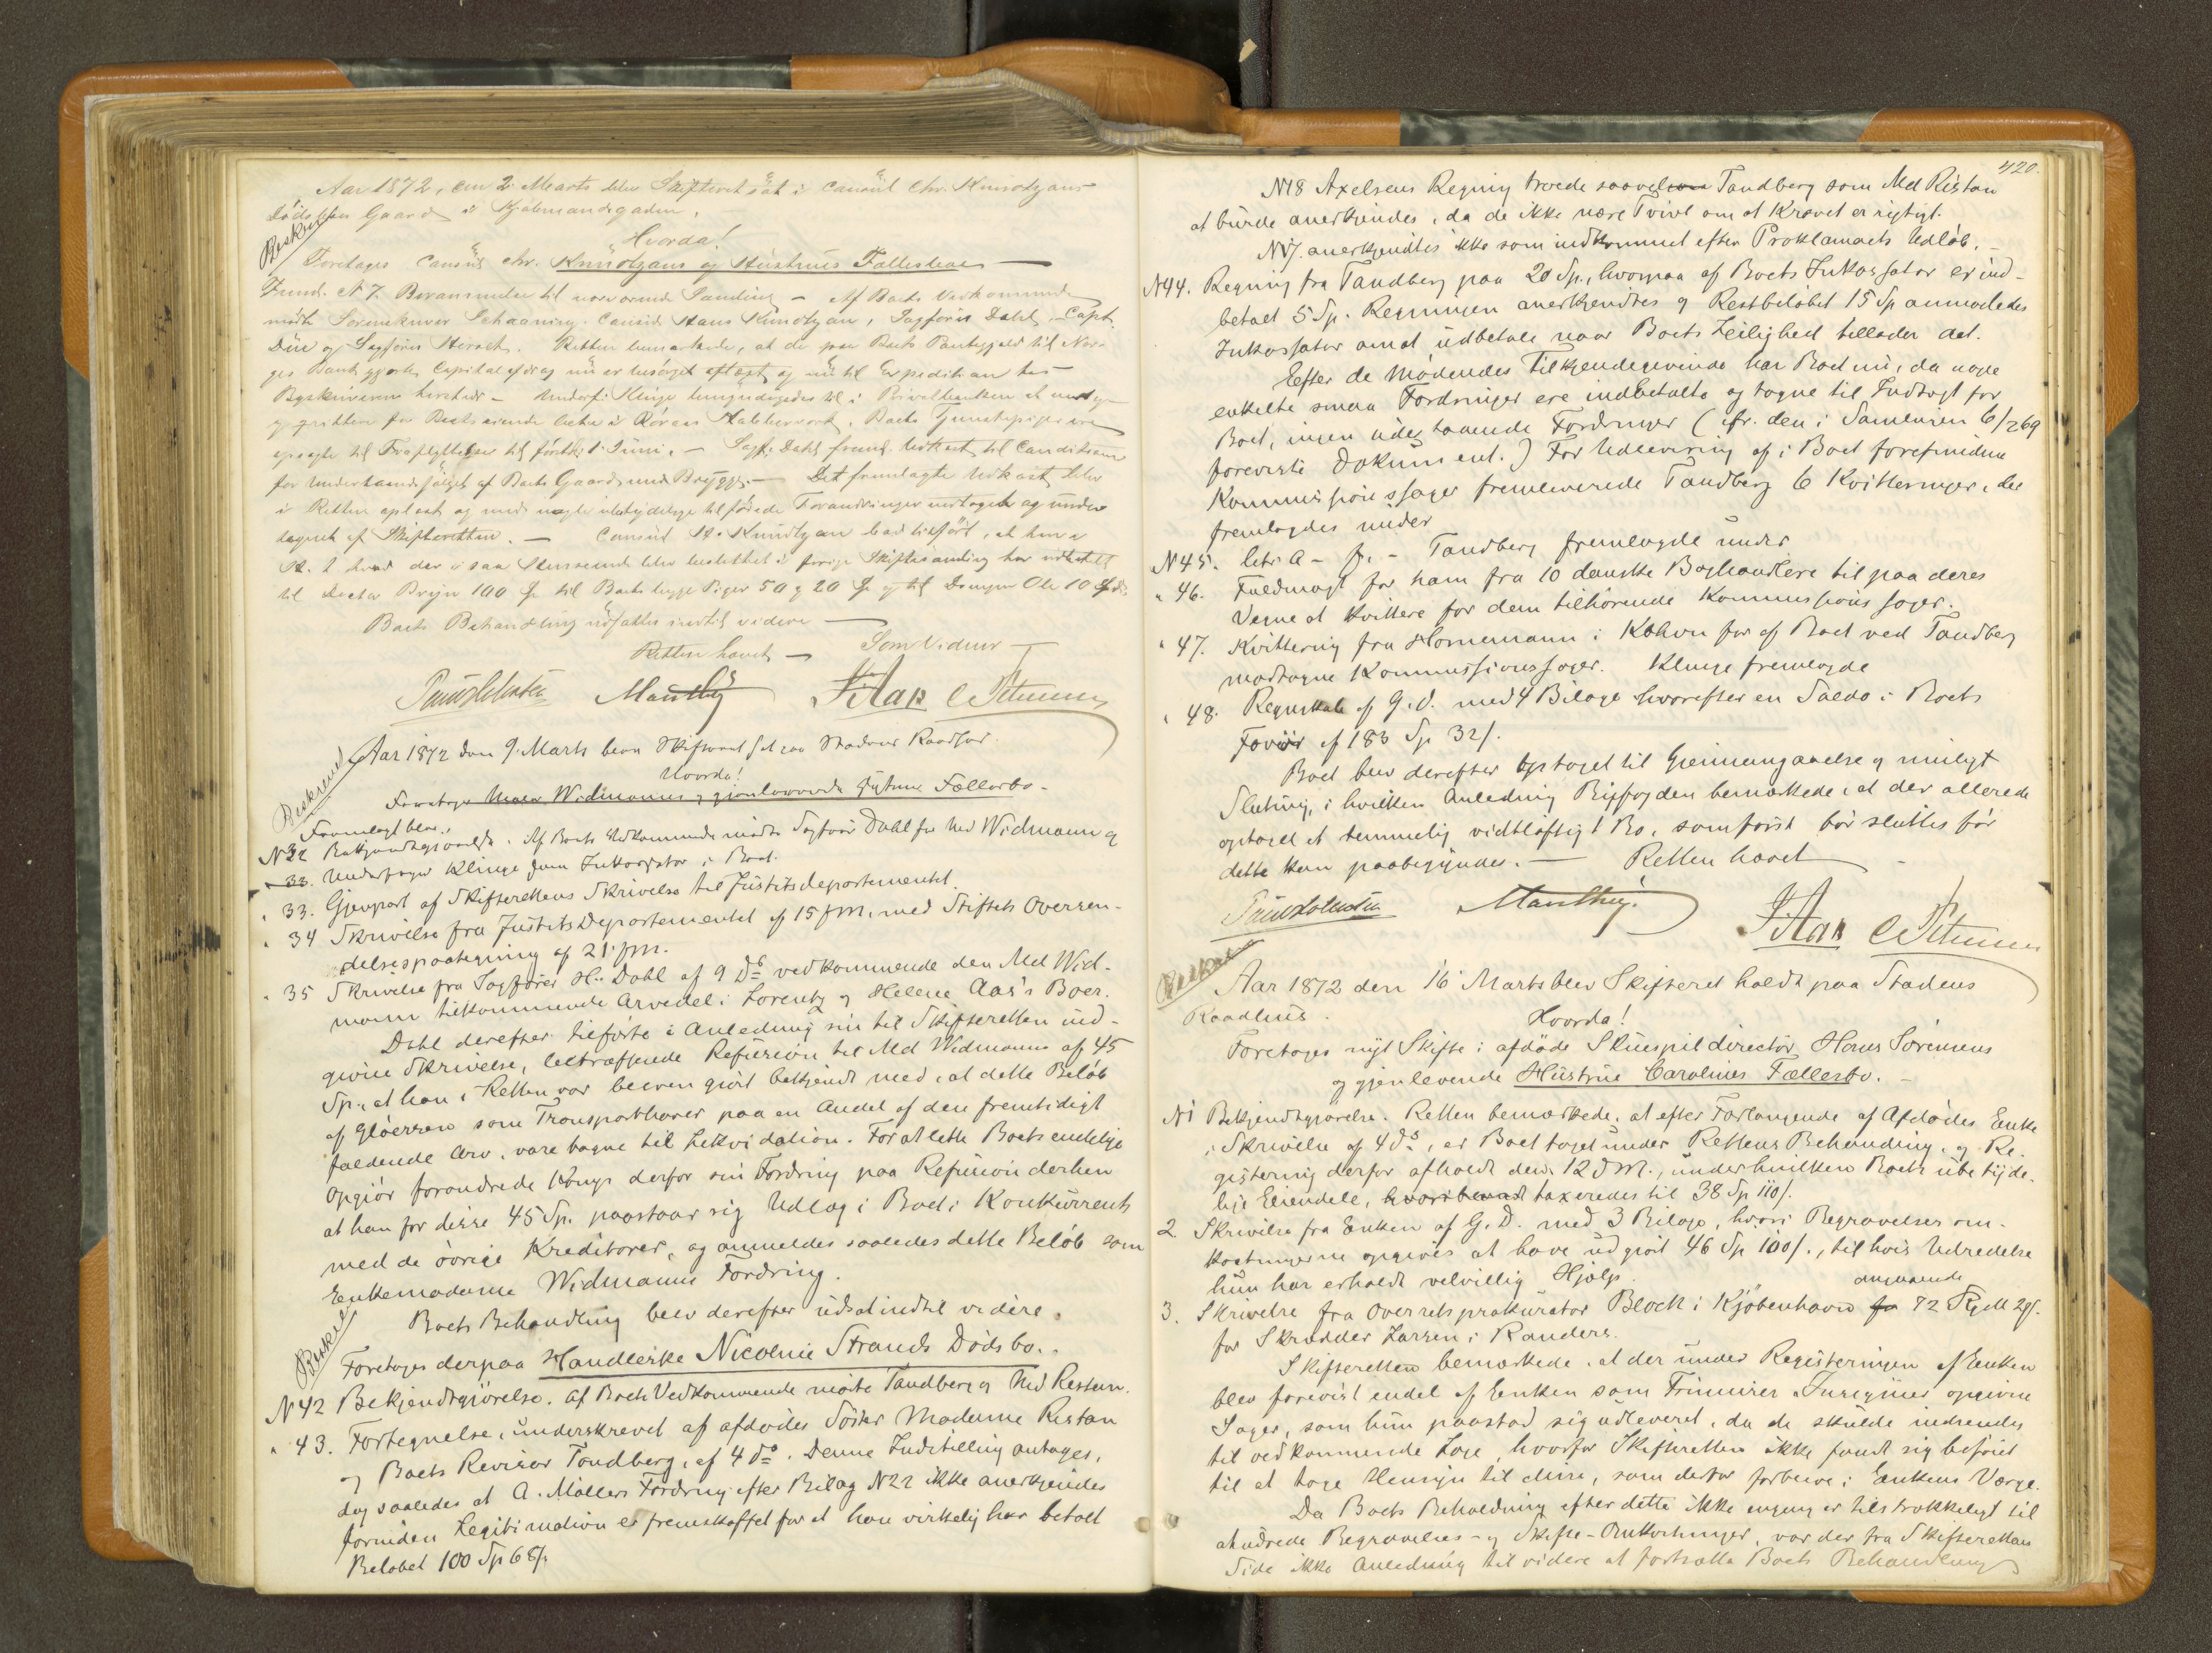 Aar 1872, den 2 Marts blev Skifteret sat i Consul Chr. Knudtzons
Dødsbos Gaard i Kjøbmandsgaden.
Beskrevet
Hvorda!
Foretages Consul Chr. Knudtzons og Hustrues Fællesboe
Freml. N 7. Berammelse til nærværende Samling - Af Boets Vedkommende
mødte Sorenskriver Schaaning, Consul Hans Knudtzon, Sagfører Dahl, Capt.
Due og Sagfører Herset. Retten bemærkede, at de paa Boets Pantegjæld til Nor-
ges Bank gjorte Capitalafdrag nu er besørget aflæst og nu til Expedition hos
Byskriveren herstæds - Underf. Klinge bemyndigedes til i Privatbanken at
for Boets eiende i Røraas Kobberværk. Boets Tjenestepiger ere
opsagte til Fraflyttelse til førstk. 1 Juni. - Sagf. Dahl freml. Udkast til Conditioner
for Underhaandssalget af Boets Gaard med Brygge. - Det fremlagte Udkast blev
i Retten oplæst og med nogle ubetydelige tilføiede Forandringer vedtaget og under
tegnet af Skifteretten. - Consul H. Knudtzon bad tilført, at han i
H. t. hvad der i saa Henseende blev besluttet i forrige Skiftesamling har udbetalt
til Doctor Bryn 100 Sp til Boets begge Piger 50 og 20 Sp og til Dreng Ole 10 Spd.
Boets Behandling udsattes indtil videre
Retten hævet - Som Vidner
Manthey F. Aas C Petersen
Beskrevet
Aar 1872 den 9. Marts blev Skifteret sat paa Stadens Raadhus.
Hvorda!
Foretages Widmanns og gjenlevende Fællesbo.
Fremlagt blev:
N 32 Bekjendtgjørelse. Af Boets Vedkommende mødte Sagfører Dahl for Md Widmann og
33. Underfoged Klinge som Inkassator i Boet.
" 33. Gjenpart af Skifterettens Skrivelse til Justitsdepartementet.
" 34 Skrivelse fra Justits Departementet af 15 f.M. med Stiftets Oversen-
delsespaategning af 21 f.m.
" 35 Skrivelse fra Sagfører H. Dahl af 9 ds vedkommende den Md Wid-
mann tilkommende Arvedel i Lorentz og Helene Aas's Boer.
Dahl derefter tilførte i Anledning sin til Skifteretten ind-
givne Skrivelse, betræffende Refusion til Md Widmann af 45
Sp., at han i Retten var bleven gjort bekjendt med, at dette Beløb
af Gløersen som Transporthaver paa en Andel af den fremtidigt
faldende Arv, vare tagne til Likvidation. For at lette Boets endelige
Opgjør forandrede Komp. derfor sin Fordring paa Refusion derhen
at han for disse 45 Sp. paastaar sig Udlæg i Boet i Konkurrents
med de øvrige Kreditorer, og anmeldes saaledes dette Beløb som
Enkemadame Widmanns Fordring.
Boets Behandling blev derefter udsat indtil videre.
Beskrevet
Foretages derpaa Handlerske Nicoline Strands Dødsbo.
N 42 Bekjendtgjørelse. Af Boets Vedkommende mødte Tandberg og Md Ristan.
" 43. Fortegnelse, underskrevet af afdødes Søster Madame Ristan
og Boets Revisor Tandberg, af 4 ds. Denne Indstilling antages,
dog saaledes at A. Møllers Fordring efter Bilag N 22 ikke anerkjendes
forinden Legitimation er fremskaffet for at han virkelig har betalt
Beløbet 100 Sp 68 s.
420.
N 18 Axelsens Regning troede saavel Tandberg som Md Ristan
at burde anerkjendes, da de ikke nære Tvivl om at Kravet er rigtigt.
anerkjendtes ikke som indkommet efter Proklamaets Udløb.
N 44. Regning fra Tandberg paa 20 Sp., hvorpaa af Boets Inkassator er ind-
betalt 5 Sp. Regningen anerkjendtes og Restbeløbet 15 Sp anmodedes
Inkassator om at udbetale naar Boets Leilighed tillader det.
Efter de Mødendes Tilkjendegivende har Boet nu, da nogle
enkelte smaa Fordringer ere indbetalte og tagne til Indtægt for
Boet, ingen udestaaende Fordringer (cfr. den i Samlingen 6/2 69
foreviste Dokument.) For Udlevering af i Boet forefundne
Kommissionssager fremleverede Tandberg 6 Kvitteringer, der
fremlagdes under
N 45. Litr. A - f. - Tandberg fremlagde under
" 46. Fuldmagt for ham fra 10 danske Boghandlere til paa deres
Vegne at kvittere for dem tilhørende Kommissions sager.
" 47. Kvittering fra Hornemann i Kbhvn for af Boet ved Tandberg
modtagne Kommissionssager. Klinge fremlagde
" 48. Regnskab af G. D. med 4 Bilage hvorefter en Saldo i Boets
Favør af 183 Sp 32 s.
Boet blev derefter optaget til Gjennemgaaelse og muligt
Slutning, i hvilken Anledning Byfogden bemærkede, at der allerede
optaget et temmelig vidtløftigt Bo, som først bør sluttes før
dette kan paabegyndes. - Retten hævet
Manthey. F. Aas C Petersen
Beskrevet
Aar 1872 den 16 Marts blev Skifteret holdt paa Stadens
Raadhus.
Hvorda!
Foretages nyt Skifte i afdøde Skuespildirectør Hans Sørensens
og gjenlevende Hustrue Carolines Fællesbo. -
N 1 Bekjendtgjørelse. Retten bemærkede, at efter Forlangende af Afdødes Enke
i Skrivelse af 4 ds, er Boet taget under Rettens Behandling, og Re-
gistering derfor afholdt den 12 d.M., under hvilken Boets ubetyde-
lige Eiendele, taxeredes til 38 Sp 110 s.
2. Skrivelse fra Enken af G. D. med 3 Bilage, hvori Begravelsesom-
kostningerne opgives at have udgjort 46 Sp 100 s., til hvis Udredelse
hun har erholdt velvillig Hjælp.
3. Skrivelse fra Overretsprokurator Block i Kjøbenhavn angaaende 72
for Skrædder Larsen i Randers.
Skifteretten bemærkede, at der under Registeringen af Enken
blev forevist endel af Enken som Frimurer Insignier opgivne
Sager, som hun paastod sig udleveret, da de skulde indsendes
til vedkommende Loge, hvorfor Skifteretten ikke fandt sig beføiet
til at tage Hensyn til disse, som derfor forbleve i Enkens Værge.
Da Boets Beholdning efter dette ikke engang er tilstrækkeligt til
at udrede Begravelses- og Skifte-Omkostninger, var der fra Skifterettens
Side ikke Anledning til videre at fortsætte Boets Behandling